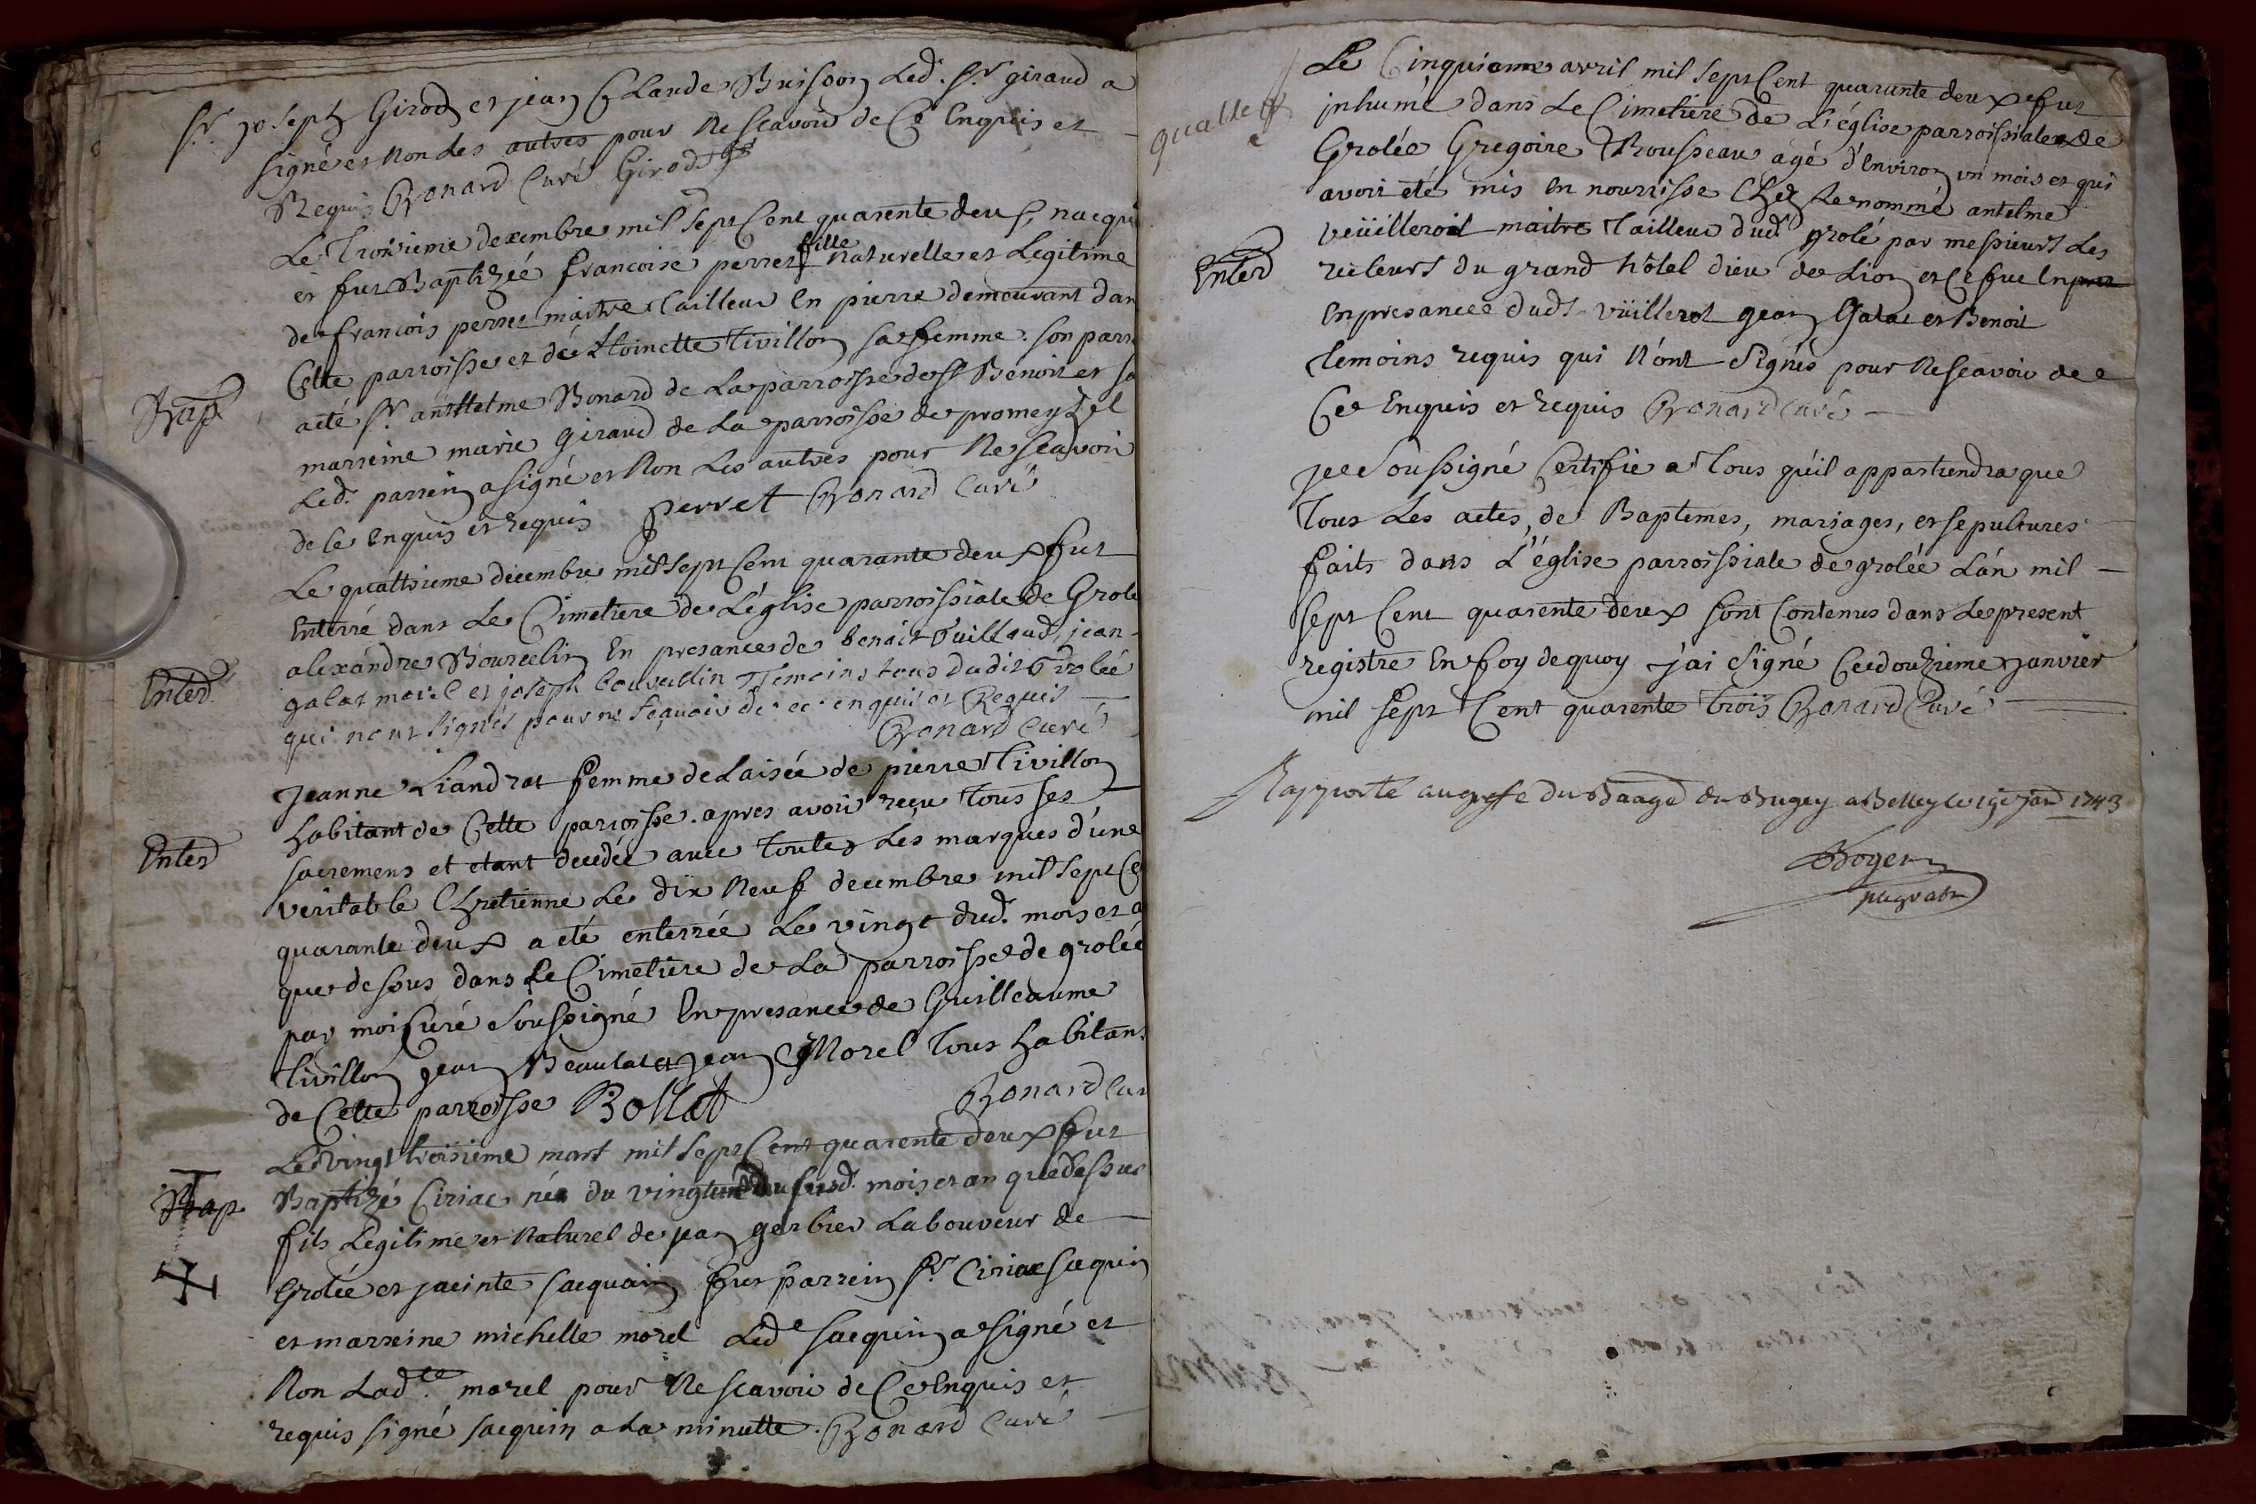 Sr. joseph Girod et jean Claude Buisson Led. Sr. giraud a
signé et Non Les autres pour Ne Scavoir de Ce Enquis et
Requis Bonard Curé Girod
Le Troisieme decembre mil Sept Cent quarente deux nacqui
et fut Baptizée francoise perret fille naturelle et Legitime
de francois perret maitre Tailleur En pierre demeurant dan
Cette parroisse et de Etoinette Tivillon sa femme. Son parr
Bap.
a eté Sr. antelme Bonard de La parroisse de St Benoit et sa
marreine marie giraud de La parroisse de promeyzel
Led. parrein a signé et Non Les autres pour Ne Scavoir
de Ce Enquis et requis perret Bonard Curé
Le quattrieme decembre mil Sept Cent quarante deux fut
Enterré dans Le Cimetiere de L'église parroissiale de Grole
alexandre Bourcelin En presance de benoit Guillaud, jean
Enterd.
galat morel et joseph bourcellin Temoins tous dudit Grolée
qui n'ont signés pour ne Sçavoir de ce enquis et Requis
Bonard Curé
Jeanne Liandrat femme delaisée de pierre Tivillon
habitant de Cette paroisse. apres avoir reçu Tous ses
Enterd
sacremens et etant decedée avec Toutes Les marques d'une
veritable Chretienne Le dix Neuf decembre mil Sept Ce
quarante deux a eté enterrée Le vingt dud. mois et a
que dessus dans le Cimetiere de La parroisse de grolée
par moi Curé Soussigné En presance de Guilleaume
Tivillon jean Beaulat et jean Morel Tous habitans
de Cette parroisse Bollat Bonard Cur
Le vingt troisieme mars mil Sept Cent quarente deux fut
Bap.
Baptizé Ciriac né du vingtun du susd. mois et an que dessus
fils Legitime et Naturel de jean gerbier Laboureur de
Grolée et jacinte sacquain fut parrein Sr. Ciriac sacquin
et marreine michelle morel Lede sacquin a signé et
Non Ladte. morel pour Ne Scavoir de Ce Enquis et
requis signé sacquin a La minutte. Bonard Curé
Le Cinquieme avril mil Sept Cent quarante deux fut
inhumé dans Le Cimetiere de L'église parroissiale de
Grolée Gregoire Rousseau agé d'Environ un mois et qui
avoit eté mis en nourrisse Chez Le nommé antelme
veüilleroil maitre Tailleur dud. grolé par messieurs Les
Enterd
recteurs du grand hôtel dieu de Lion et Ce fut En pres
En presance dudt. vüillerot jean Galat et Benoit
temoins requis qui N'ont Signés pour Ne Scavoir de
Ce Enquis et requis Bonard Curé
je Soussigné Certifie a Tous qu'il appartiendra que
Tous Les actes, de Baptemes, mariages, et sepultures
faits dans L'église parroissiale de grolée L'an mil
Sept Cent quarente deux sont Contenus dans Le present
registre En foy de quoy j'ai Signé Ce douzieme janvier
mil Sept Cent quarente Trois Bonard Curé
Rapporté au greffe du Baage du Bugey a Belley le 19e janr 1743